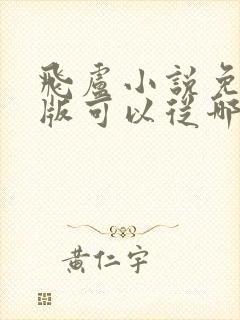 飛盧小說免
版可以從哪
黃仁宇